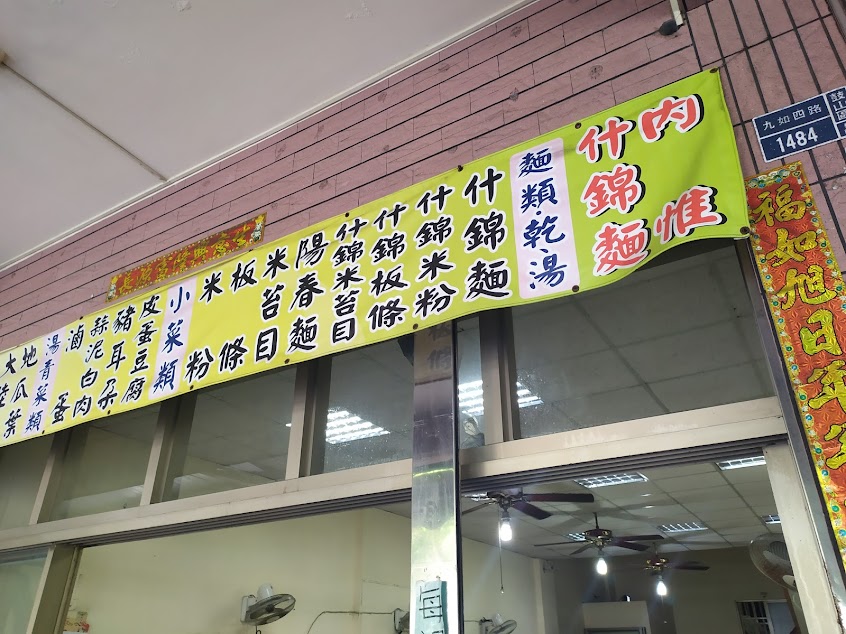 內惟
什錦麵
麵類·乾湯
什錦麵
什錦米粉
什錦板條
什錦米苔目
陽春麵
米苔目
板條
米粉
小菜類
皮蛋豆腐
豬耳朵
蒜泥白肉
滷蛋
湯青菜類
地瓜葉
九如四路
1484
鼓山區
福如旭日年年